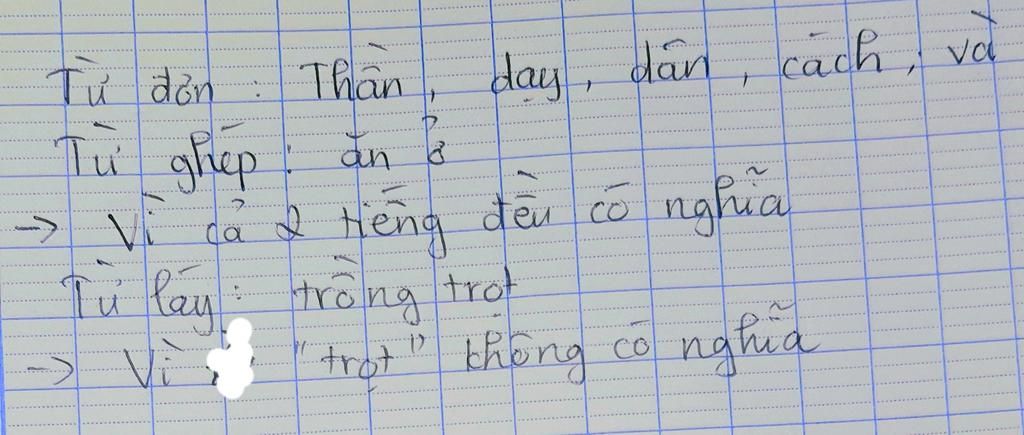 Từ đơn : Thần, dạy, dân, cách, và
Từ ghép : ăn ở
→ Vì cả 2 tiếng đều có nghĩa
Từ láy : trồng trọt
→ Vì "trọt" không có nghĩa